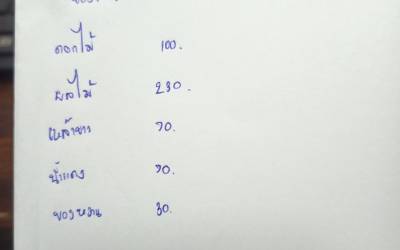 ดอกไม้ 100.
ผลไม้ 230.
เหล้าขาว 70.
น้ำแดง 70.
ของหวาน 30.